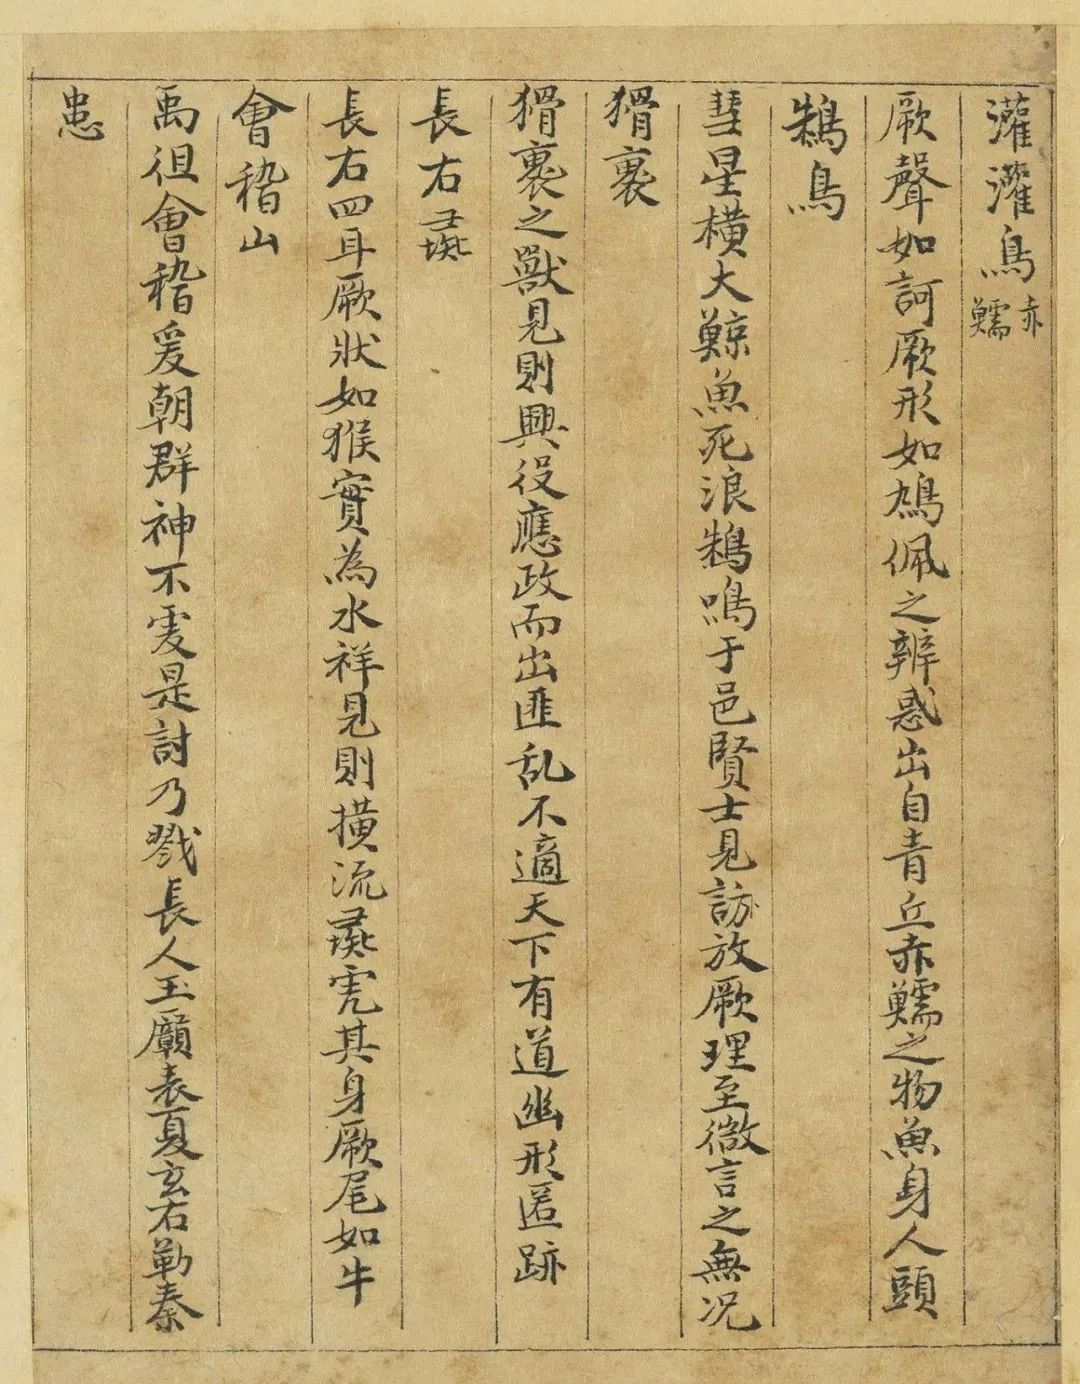 灌灌鳥 赤鱬
厥聲如訶厥形如鳩佩之辨惑出自青丘赤鱬之物魚身人頭
鴸鳥
彗星橫大鯨魚死浪鴸鳴于邑賢士見訪放厥理至微言之無况
猾褢
猾褢之獸見則興役應政而出匪乱不適天下有道幽形匿跡
長右彘
長右四耳厥狀如猴實為水祥見則撗流彘虎其身厥尾如牛
會稽山
禹徂會稽爰朝群神不虔是討乃戮長人玉匱表夏玄石勒秦
患